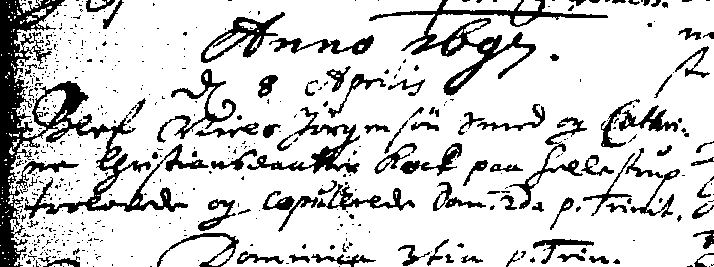 Anno 1697.
d 8 Aprilis
Blef Niels Jörgensön Smed og Cathri-
ne Christiansdaatter Kock paa Hellestrup
trolovede og copulerede Dom. 2da p. Trinit.
Dominica 3tia p. Trin.